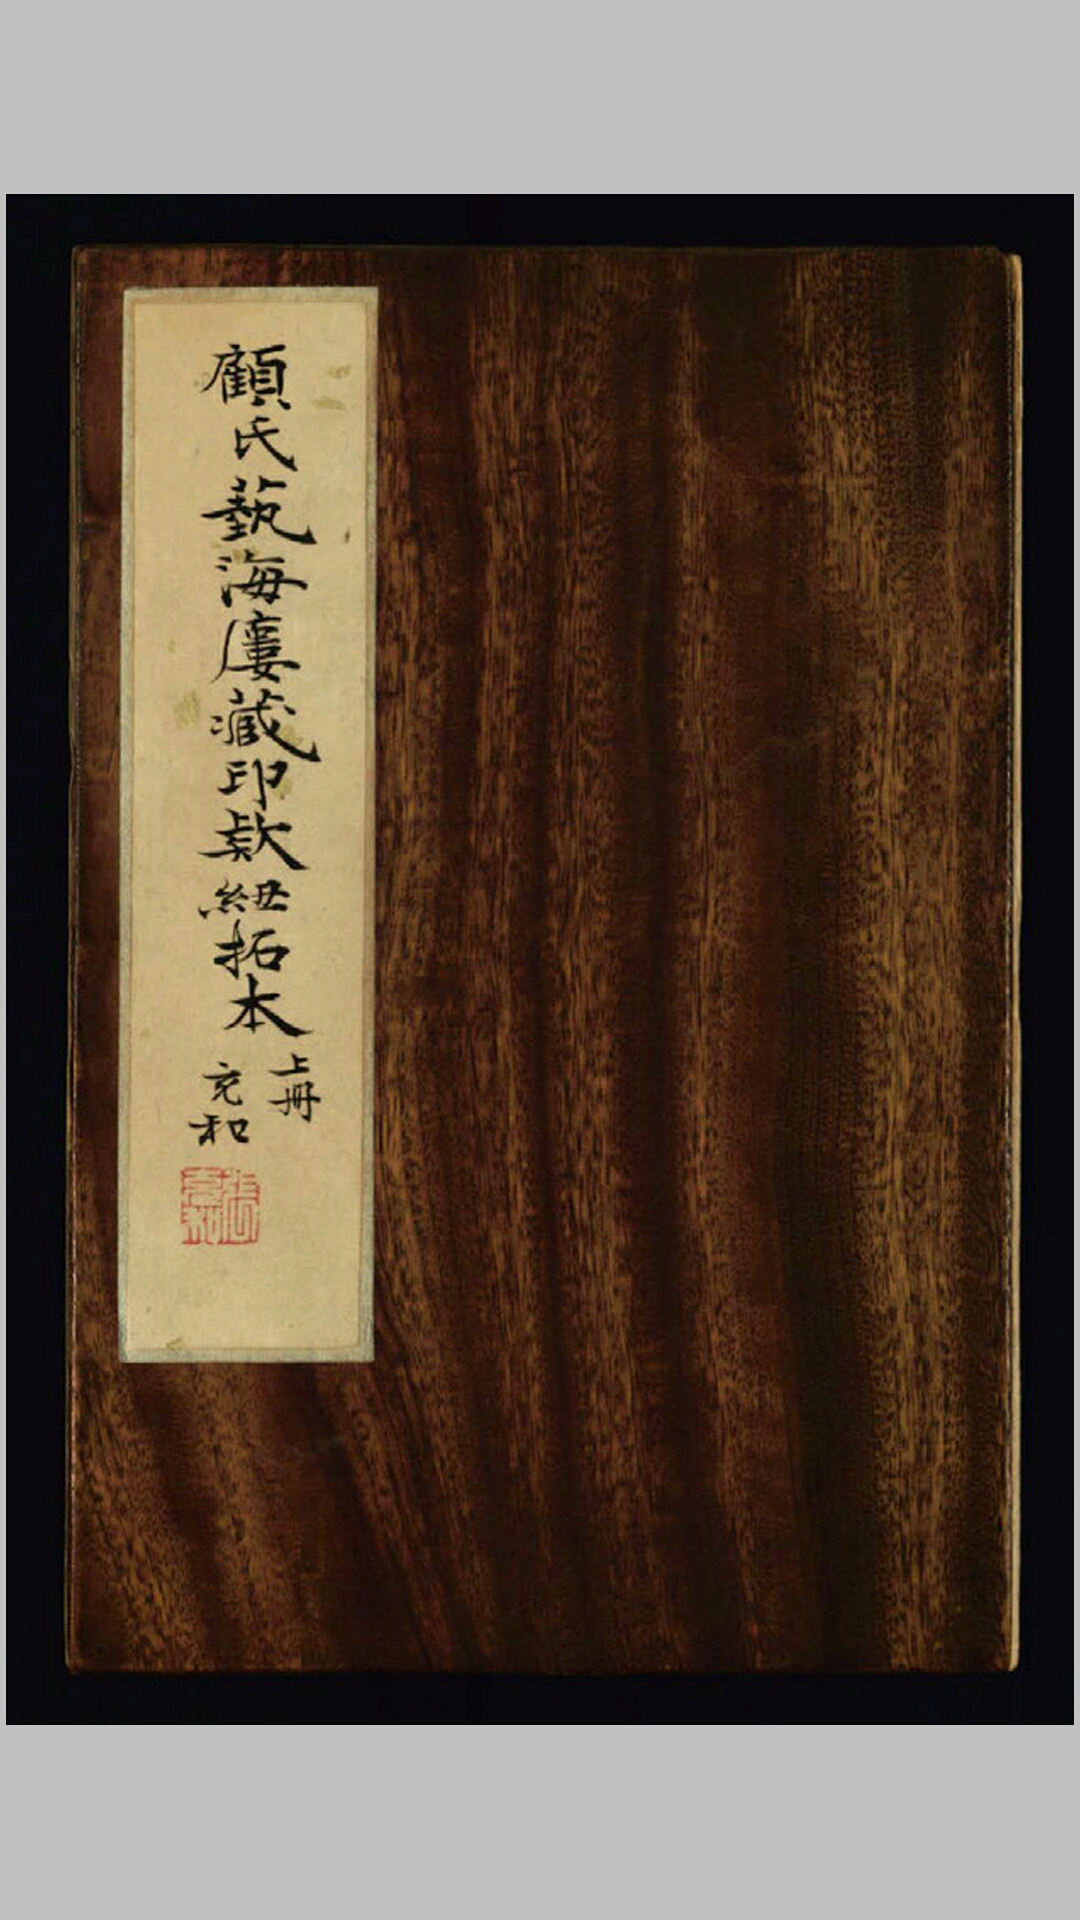 顧氏藝海廔藏印款紐拓本
上冊
充和